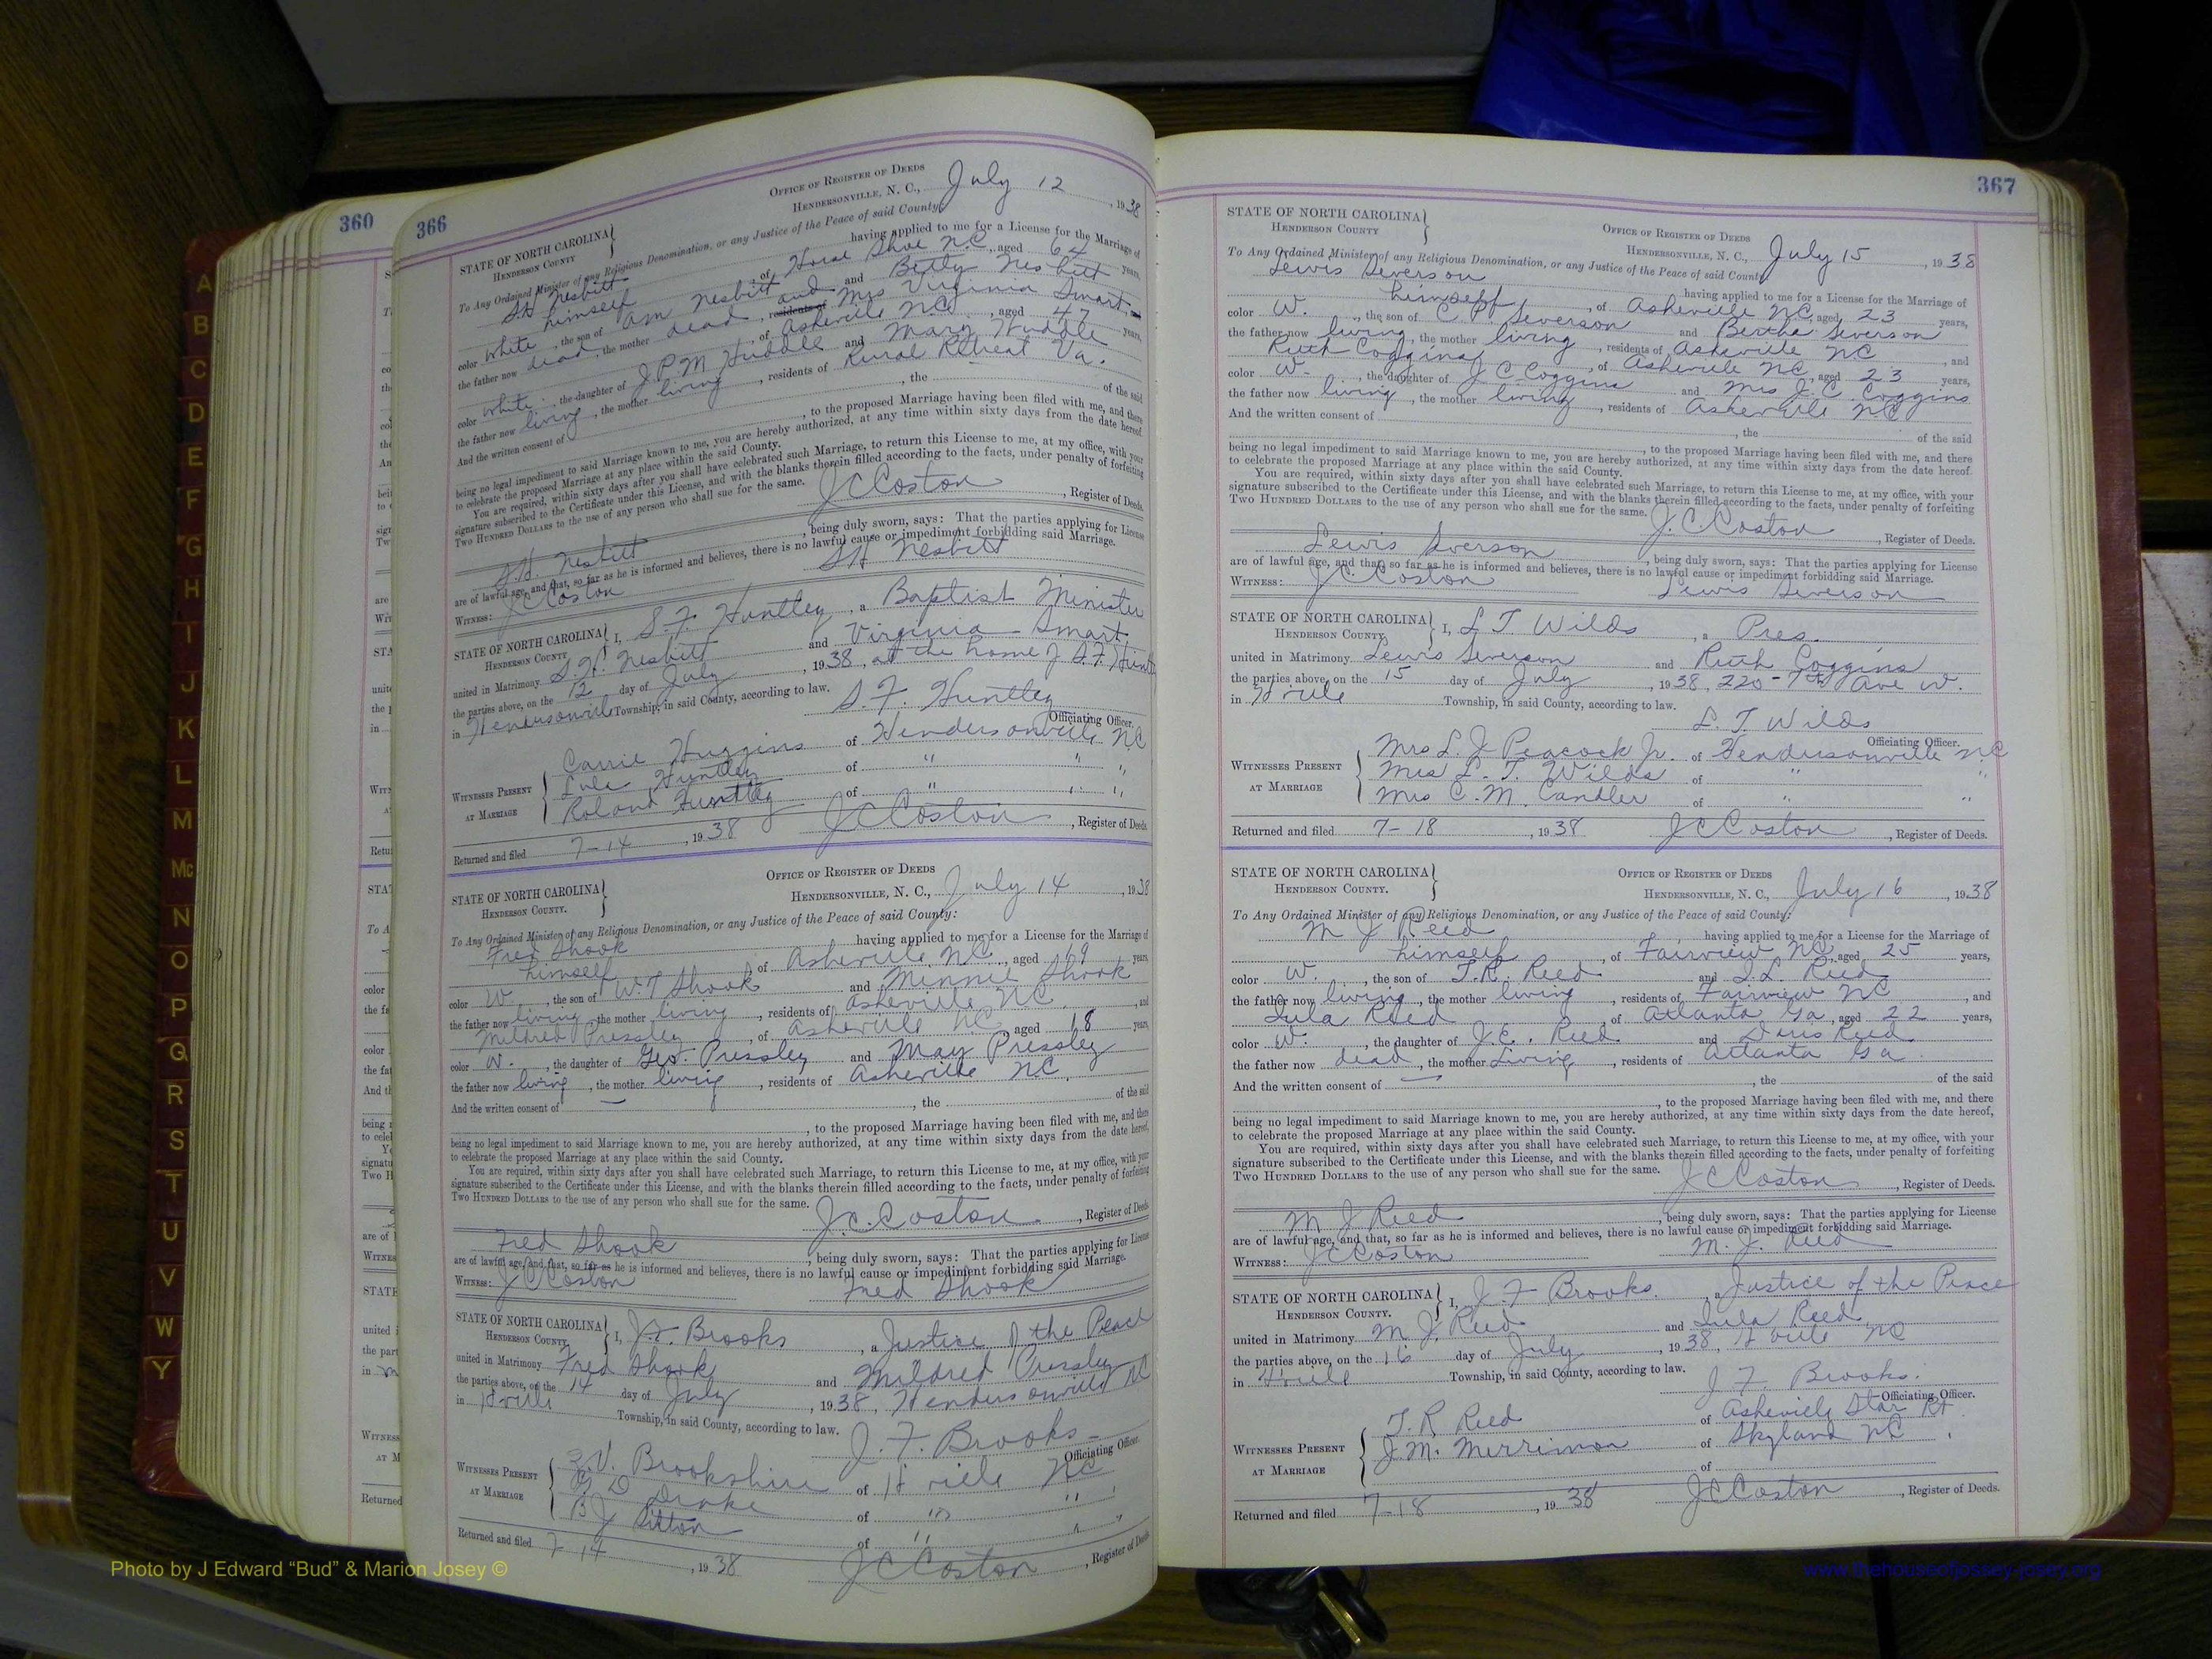 360
A
B
C
D
E
F
G
H
I
J
K
L
M
Mc
N
O
P
Q
R
S
T
U
V
W
Y
366
OFFICE OF REGISTER OF DEEDS
STATE OF NORTH CAROLINA
HENDERSON COUNTY
HENDERSONVILLE, N. C., July 12, 1938
To Any Ordained Minister of any Religious Denomination, or any Justice of the Peace of said County:
S.H. Nesbitt having applied to me for a License for the Marriage of
himself of Horse Shoe N.C., aged 64 years,
color White, the son of Am Nesbitt and Betty Nesbitt
the father now dead, the mother dead, residents and Mrs Virginia Smart,
of Asheville NC, aged 47 years,
color White, the daughter of J.P.M Huddle and Mary Huddle
the father now living, the mother living, residents of Rural Retreat Va.
And the written consent of , the of the said
, to the proposed Marriage having been filed with me, and there
being no legal impediment to said Marriage known to me, you are hereby authorized, at any time within sixty days from the date hereof
to celebrate the proposed Marriage at any place within the said County.
You are required, within sixty days after you shall have celebrated such Marriage, to return this License to me, at my office, with your
signature subscribed to the Certificate under this License, and with the blanks therein filled according to the facts, under penalty of forfeiting
TWO HUNDRED DOLLARS to the use of any person who shall sue for the same.
J C Coston, Register of Deeds.
S.H. Nesbitt, being duly sworn, says: That the parties applying for License
are of lawful age, and that, so far as he is informed and believes, there is no lawful cause or impediment forbidding said Marriage.
WITNESS: J C Coston S H Nesbitt
STATE OF NORTH CAROLINA
HENDERSON COUNTY
I, S. F. Huntley, a Baptist Minister
united in Matrimony S. H. Nesbitt and Virginia Smart
the parties above, on the 12 day of July, 1938, at the home of S.F. Huntley
in Hendersonville Township, in said County, according to law.
S. F. Huntley
Officiating Officer.
WITNESSES PRESENT AT MARRIAGE
Carrie Huggins of Hendersonville NC
Lula Huntley of " " "
Roland Huntley of " " "
Returned and filed 7-14, 1938 J C Coston, Register of Deeds.
OFFICE OF REGISTER OF DEEDS
STATE OF NORTH CAROLINA
HENDERSON COUNTY.
HENDERSONVILLE, N. C., July 14, 1938
To Any Ordained Minister of any Religious Denomination, or any Justice of the Peace of said County:
Fred Shook having applied to me for a License for the Marriage of
himself, of Asheville N.C., aged 19 years,
color W., the son of W.T Shook and Minnie Shook
the father now living, the mother living, residents of Asheville NC, and
Mildred Pressley, of Asheville NC, aged 18 years,
color W., the daughter of Geo. Pressley and May Pressley
the father now living, the mother living, residents of Asheville NC,
And the written consent of — , the of the said
, to the proposed Marriage having been filed with me, and there
being no legal impediment to said Marriage known to me, you are hereby authorized, at any time within sixty days from the date hereof,
to celebrate the proposed Marriage at any place within the said County.
You are required, within sixty days after you shall have celebrated such Marriage, to return this License to me, at my office, with your
signature subscribed to the Certificate under this License, and with the blanks therein filled according to the facts, under penalty of forfeiting
TWO HUNDRED DOLLARS to the use of any person who shall sue for the same.
J.C. Coston, Register of Deeds
Fred Shook, being duly sworn, says: That the parties applying for License
are of lawful age, and that, so far as he is informed and believes, there is no lawful cause or impediment forbidding said Marriage.
WITNESS: J C Coston Fred Shook
STATE OF NORTH CAROLINA
HENDERSON COUNTY.
I, J.F. Brooks, a Justice of the Peace
united in Matrimony Fred Shook and Mildred Pressley
the parties above, on the 14 day of July, 1938, Hendersonville NC
in Hville Township, in said County, according to law.
J. F. Brooks
Officiating Officer.
WITNESSES PRESENT AT MARRIAGE
Z.V. Brookshire of Hville NC
D Drake of " " "
B J Sitton of " " "
Returned and filed 7-14, 1938 J C Coston, Register of Deeds
367
STATE OF NORTH CAROLINA
HENDERSON COUNTY
OFFICE OF REGISTER OF DEEDS
HENDERSONVILLE, N. C., July 15, 1938
To Any Ordained Minister of any Religious Denomination, or any Justice of the Peace of said County
Lewis Severson having applied to me for a License for the Marriage of
himself, of Asheville NC, aged 23 years,
color W., the son of C. P. Severson and Bertha Severson
the father now living, the mother living, residents of Asheville NC, and
Ruth Coggins, of Asheville NC, aged 23 years,
color W-, the daughter of J C Coggins and Mrs J. C. Coggins
the father now living, the mother living, residents of Asheville NC
And the written consent of , the of the said
, to the proposed Marriage having been filed with me, and there
being no legal impediment to said Marriage known to me, you are hereby authorized, at any time within sixty days from the date hereof.
to celebrate the proposed Marriage at any place within the said County.
You are required, within sixty days after you shall have celebrated such Marriage, to return this License to me, at my office, with your
signature subscribed to the Certificate under this License, and with the blanks therein filled according to the facts, under penalty of forfeiting
TWO HUNDRED DOLLARS to the use of any person who shall sue for the same.
J. C. Coston, Register of Deeds.
Lewis Sverson, being duly sworn, says: That the parties applying for License
are of lawful age, and that, so far as he is informed and believes, there is no lawful cause or impediment forbidding said Marriage.
WITNESS: J C Coston Lewis Severson
STATE OF NORTH CAROLINA
HENDERSON COUNTY.
I, L T. Wilds, a Pres.
united in Matrimony Lewis Severson and Ruth Coggins
the parties above, on the 15 day of July, 1938, 220-7th Ave W.
in Hville Township, in said County, according to law.
L. T. Wilds
Officiating Officer.
WITNESSES PRESENT AT MARRIAGE
Mrs L. J Peacock Jr. of Hendersonville NC
Mrs L. T. Wilds of " "
Mrs C. M. Candler of " "
Returned and filed 7-18, 1938 J C Coston, Register of Deeds.
STATE OF NORTH CAROLINA
HENDERSON COUNTY.
OFFICE OF REGISTER OF DEEDS
HENDERSONVILLE, N. C., July 16, 1938
To Any Ordained Minister of any Religious Denomination, or any Justice of the Peace of said County:
M J Reed having applied to me for a License for the Marriage of
himself, of Fairview NC, aged 25 years,
color W., the son of T.R. Reed and Reed
the father now living, the mother living, residents of Fairview NC, and
Lula Reed, of Atlanta Ga, aged 22 years,
color W., the daughter of J.E. Reed and Doris Reed
the father now dead, the mother Living, residents of Atlanta Ga.
And the written consent of — , the of the said
, to the proposed Marriage having been filed with me, and there
being no legal impediment to said Marriage known to me, you are hereby authorized, at any time within sixty days from the date hereof,
to celebrate the proposed Marriage at any place within the said County.
You are required, within sixty days after you shall have celebrated such Marriage, to return this License to me, at my office, with your
signature subscribed to the Certificate under this License, and with the blanks therein filled according to the facts, under penalty of forfeiting
TWO HUNDRED DOLLARS to the use of any person who shall sue for the same.
J C Coston, Register of Deeds.
M J Reed, being duly sworn, says: That the parties applying for License
are of lawful age, and that, so far as he is informed and believes, there is no lawful cause or impediment forbidding said Marriage.
WITNESS: J C Coston M. J. Reed
STATE OF NORTH CAROLINA
HENDERSON COUNTY.
I, J. F Brooks., a Justice of the Peace
united in Matrimony M J. Reed and Lula Reed
the parties above, on the 16 day of July, 1938, Hville NC
in Hville Township, in said County, according to law.
J F Brooks.
Officiating Officer.
WITNESSES PRESENT AT MARRIAGE
T. R Reed of Asheville Star Rt
J.M. Merrimon of Skyland NC
of
Returned and filed 7-18, 1938 J C Coston, Register of Deeds.
Photo by J Edward “Bud” & Marion Josey ©
www.thehouseofjossey-josey.org